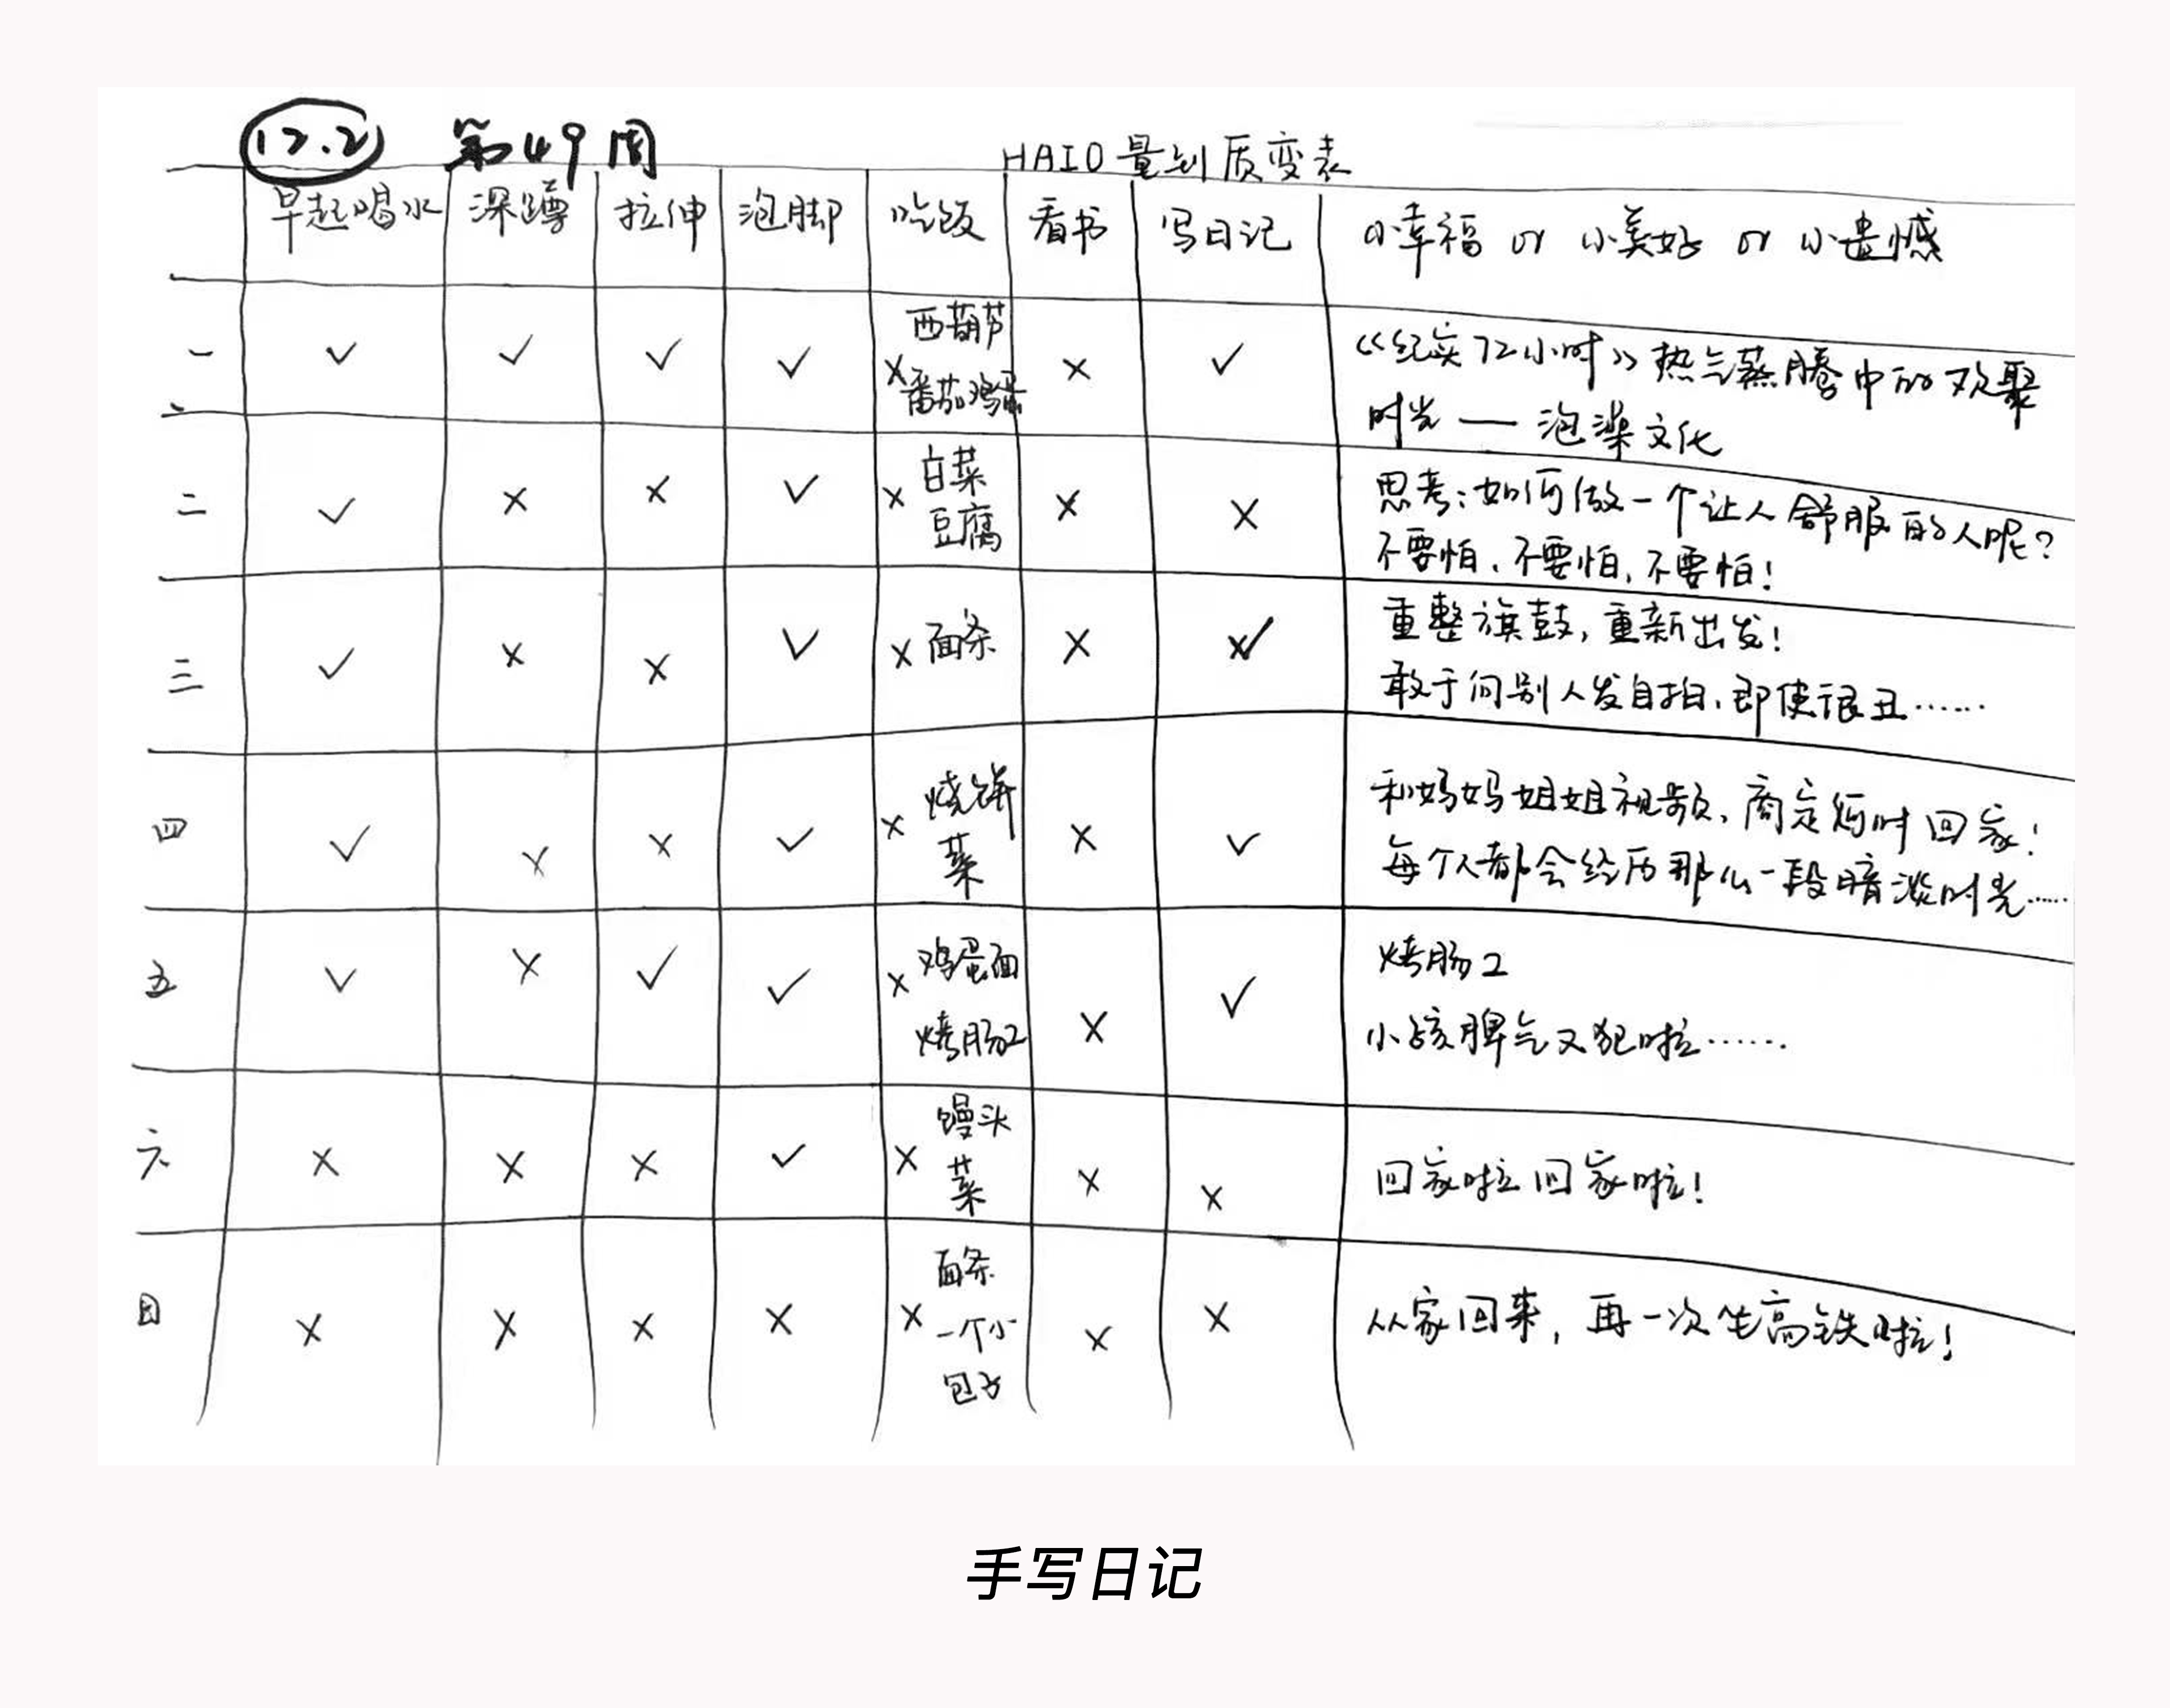 12.2 第49周
HAIO量到质变表
早起喝水 深蹲 拉伸 泡脚 吃饭 看书 写日记 小幸福 or 小美好 or 小遗憾
一 ✓ ✓ ✓ ✓ × 西葫芦 番茄鸡蛋 × ✓ 《纪实72小时》热气蒸腾中的欢聚
时光——泡澡文化
二 ✓ × × ✓ × 白菜 豆腐 × × 思考:如何做一个让人舒服的人呢?
不要怕、不要怕,不要怕!
三 ✓ × × ✓ × 面条 × ✓ 重整旗鼓,重新出发!
敢于向别人发自拍,即使很丑……
四 ✓ × × ✓ × 烧饼 菜 × ✓ 和妈妈姐姐视频,商定何时回家!
每个人都会经历那么一段暗淡时光……
五 ✓ × ✓ ✓ × 鸡蛋面 烤肠2 × ✓ 烤肠2
小孩脾气又犯啦……
六 × × × ✓ × 馒头 菜 × × 回家啦回家啦!
日 × × × × × 面条 一个小 包子 × × 从家回来,再一次坐高铁啦!
手写日记